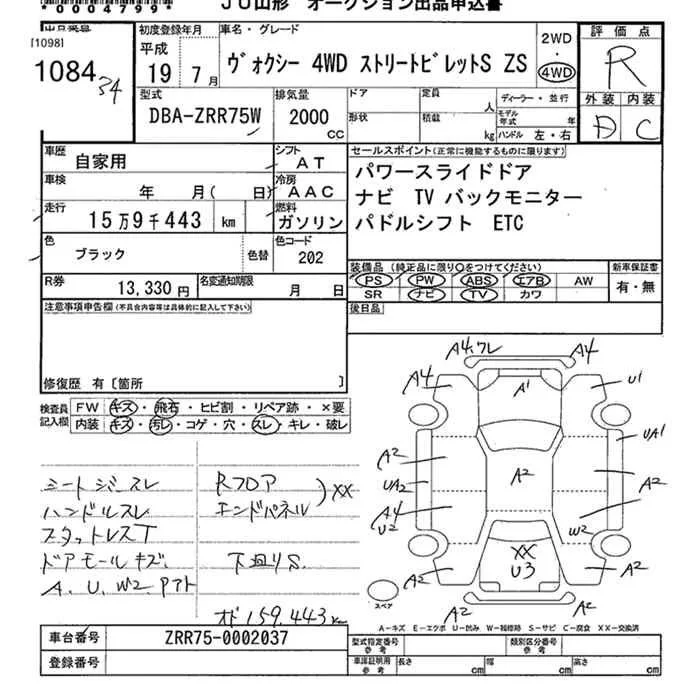 *00004799*
JU山形 オークション出品申込書
出品票番
[1098]
1084
34
初度登録年月
平成
19年7月
車名・グレード
ヴォクシー 4WD ストリートビレットS ZS
2WD
・
4WD
評価点
R
外装 内装
D C
型式
DBA-ZRR75W
排気量
2000
CC
ドア
形状
定員
人
積載
kg
ディーラー・並行
モデル年式 年
ハンドル 左・右
車歴
自家用
シフト
AT
車検
年 月( 日)
冷房
AAC
走行
15万9千443 km
燃料
ガソリン
色
ブラック
色替
色コード
202
セールスポイント(正常に機能するものに限ります)
パワースライドドア
ナビ TV バックモニター
パドルシフト ETC
R券
13,330 円
名変通知期限
月 日
装備品 (純正品に限り○をつけてください)
PS PW ABS エアB AW
SR ナビ TV カワ
新車保証書
有・無
後日品
注意事項申告欄(不具合内容等は具体的に記入して下さい)
修復歴 有〔箇所 〕
検査員記入欄
FW キズ・飛石・ヒビ割・リペア跡・×要
内装 キズ・汚レ・コゲ・穴・スレ・キレ・破レ
シートジミスレ
ハンドルスレ
スタットレスT
ドアモールキズ
A、U、W2 アト
Rフロア
エンドパネル
)XX
下廻りS
オド159,443km
A4,ワレ
A4
A4
A1
U1
UA1
A2
UA2
A2
A2
A4
U2
W2
XX
U3
A2
A2
A2
A2
スペア
A-キズ E-エクボ U-凹み W-補修跡 S-サビ C-腐食 XX-交換済
車台番号
ZRR75-0002037
登録番号
型式指定番号
参考
類別区分番号
参考
車庫証明用
参考
長さ cm
幅 cm
高さ cm